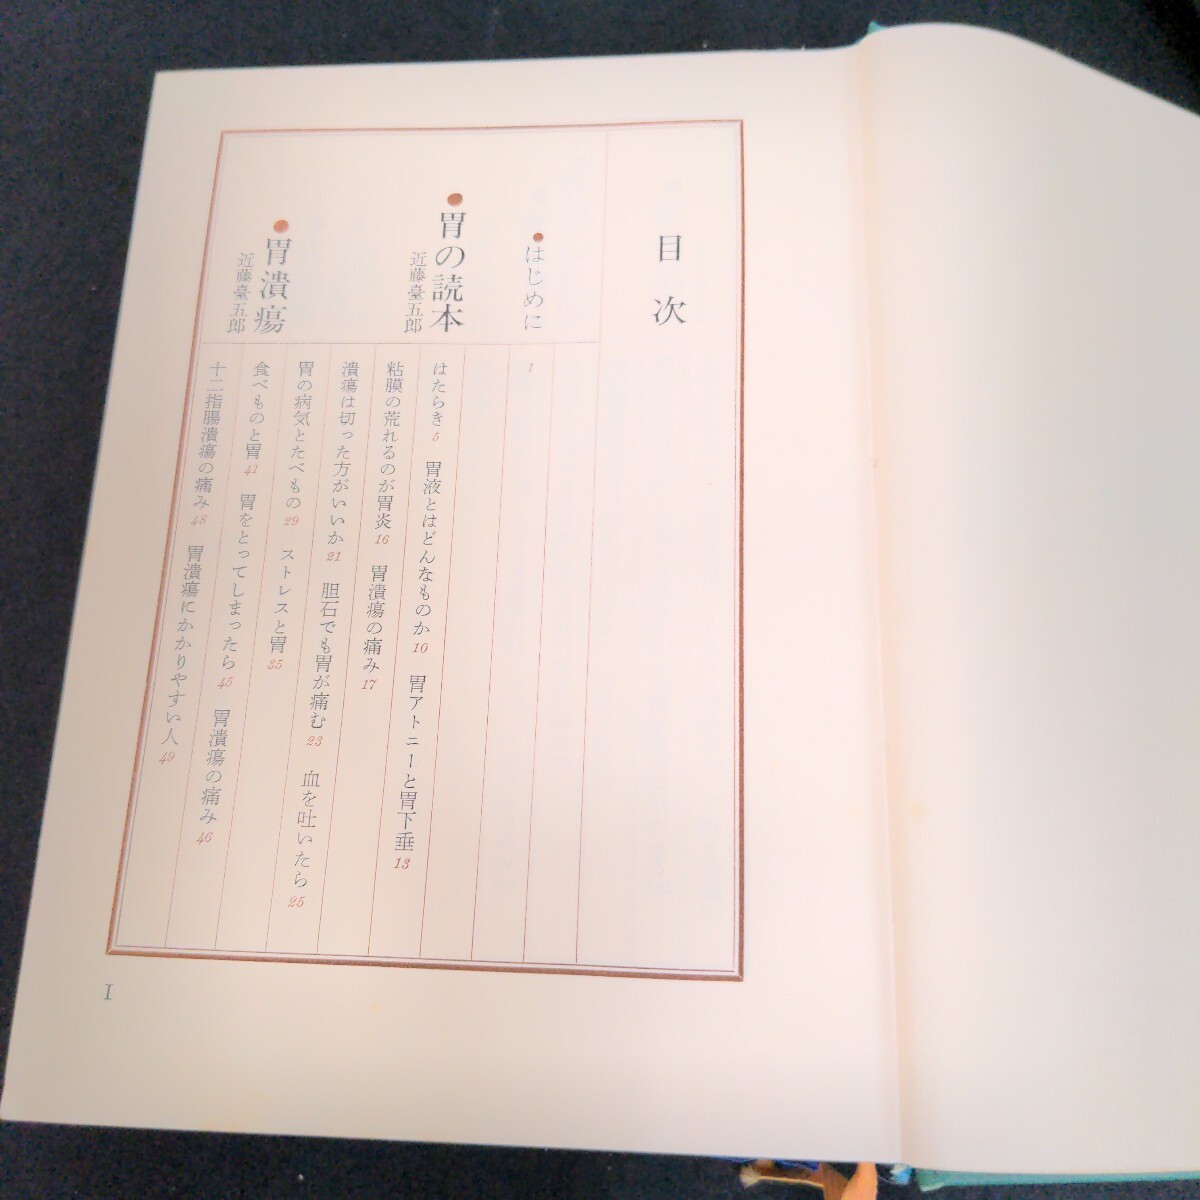 目次
●はじめに
1
●胃の読本
近藤臺五郎
はたらき 5 胃液とはどんなものか 10 胃アトニーと胃下垂 13
粘膜の荒れるのが胃炎 16 胃潰瘍の痛み 17
潰瘍は切った方がいいか 21 胆石でも胃が痛む 23 血を吐いたら 25
胃の病気とたべもの 29 ストレスと胃 35
食べものと胃 41 胃をとってしまったら 45 胃潰瘍の痛み 46
●胃潰瘍
近藤臺五郎
十二指腸潰瘍の痛み 48 胃潰瘍にかかりやすい人 49
I